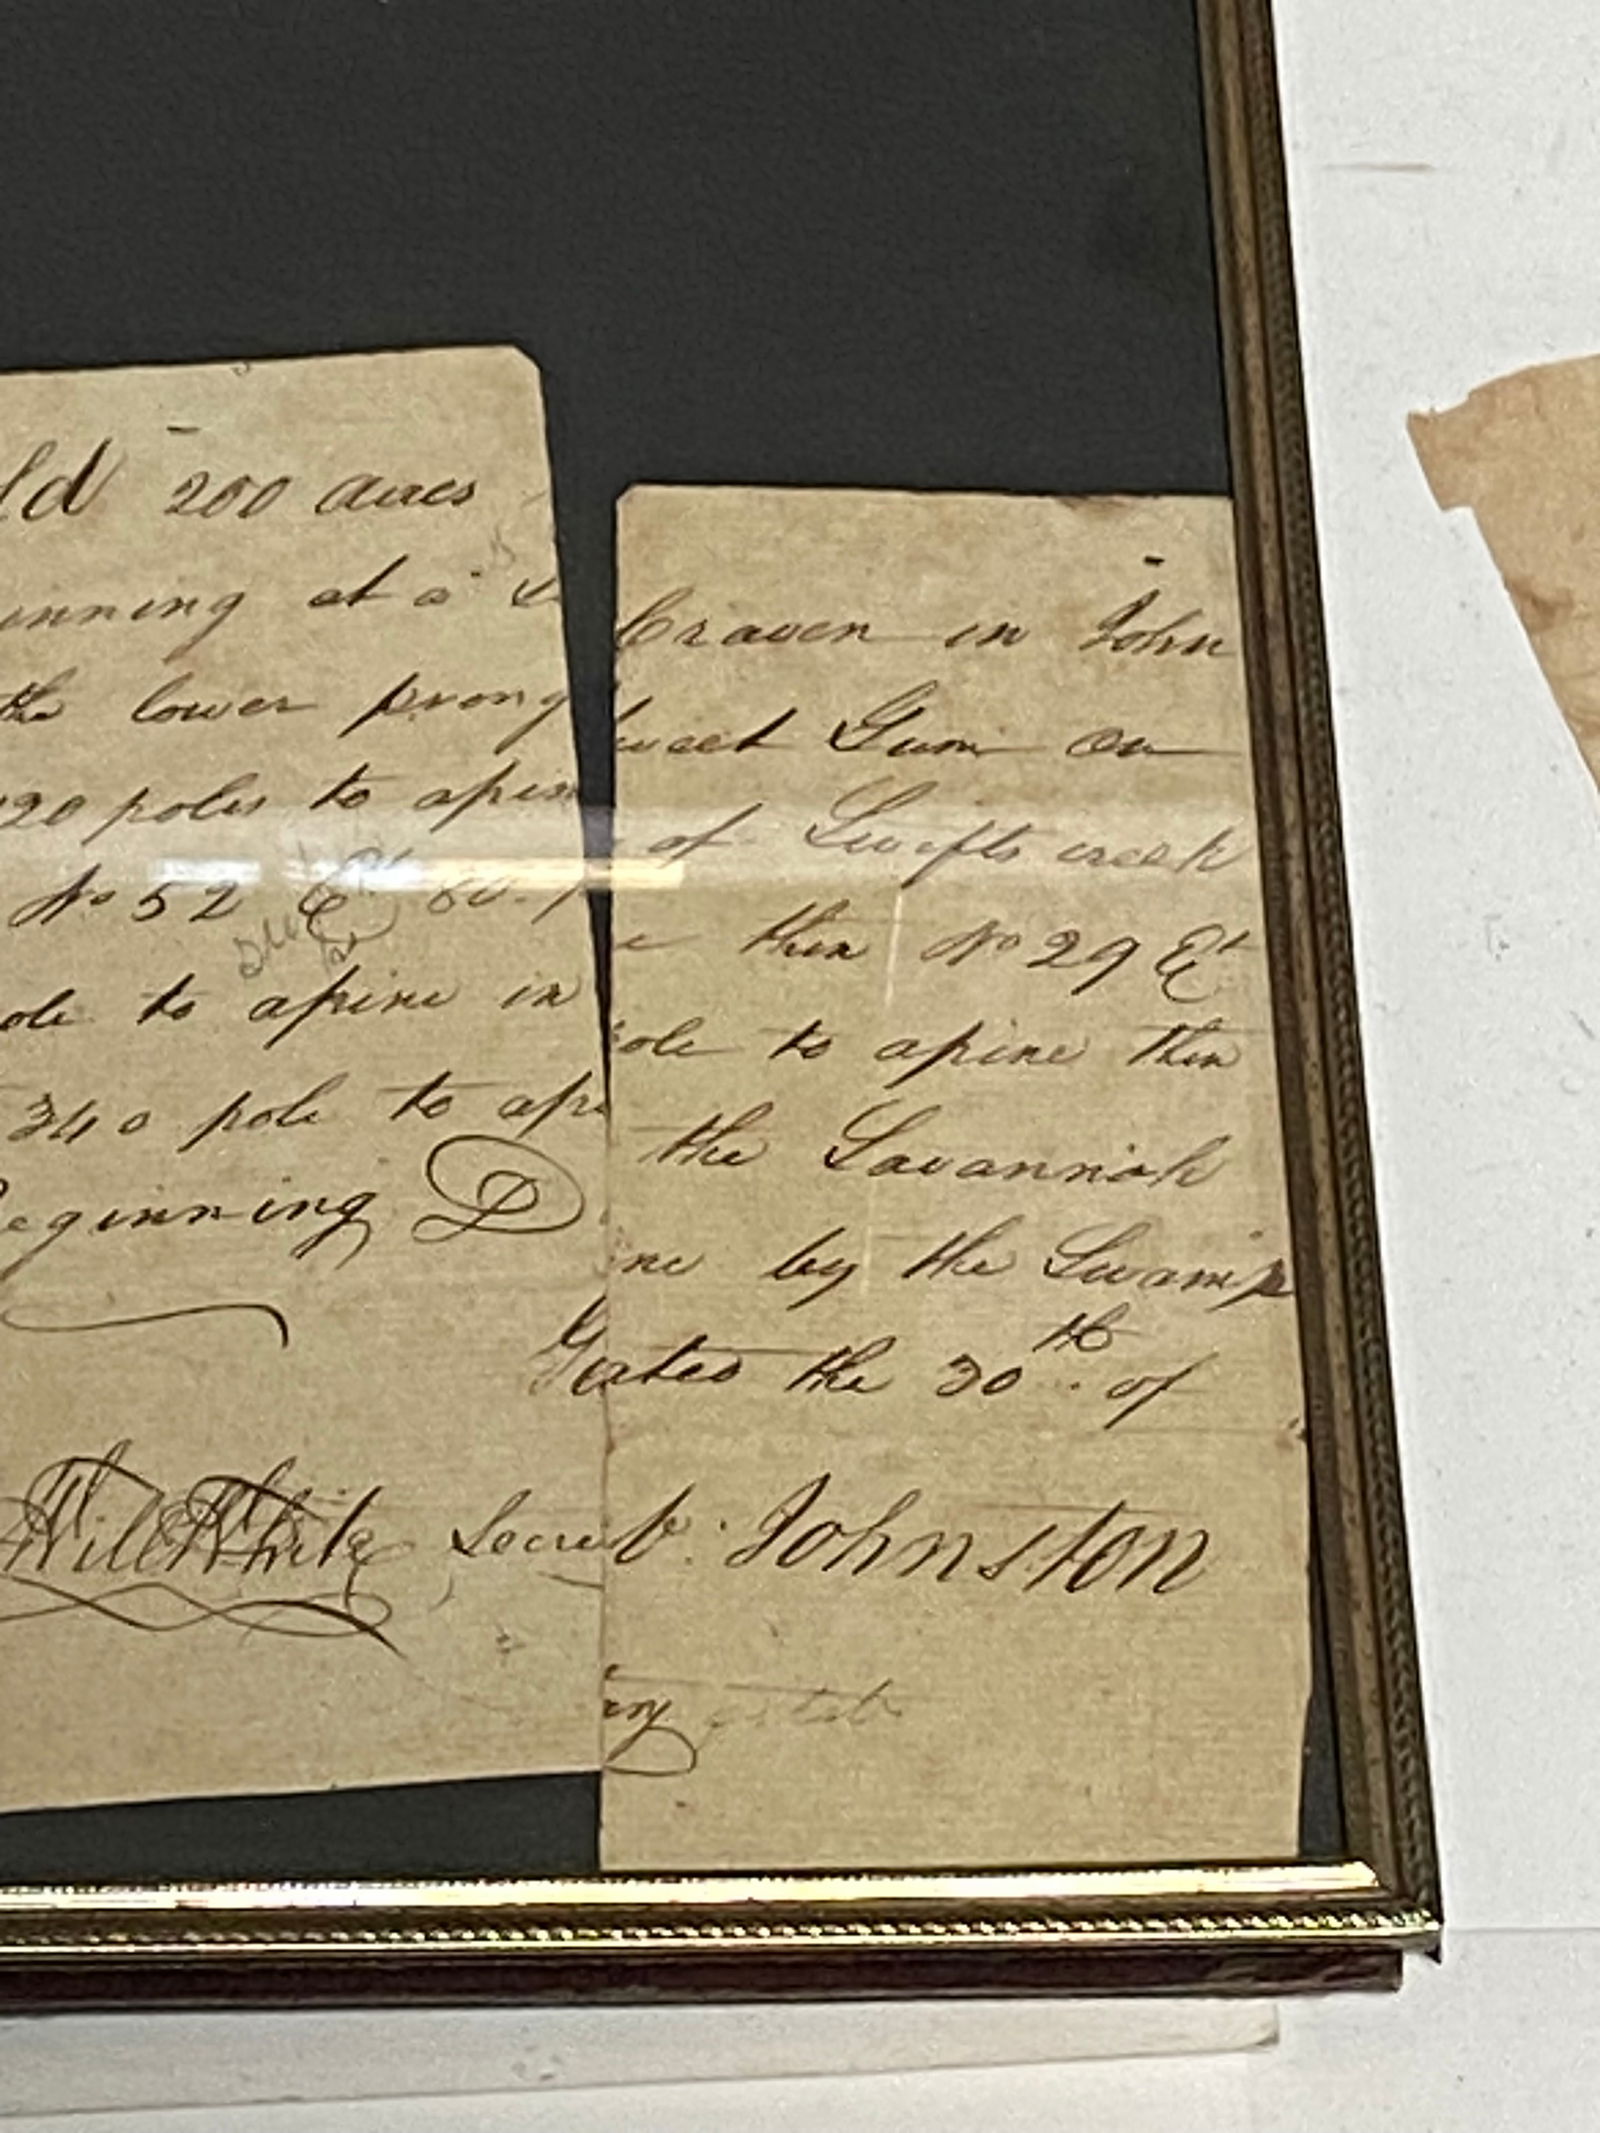 ld 200 acres Craven in John
inning at a Sweet Gum on
the lower prong of Swifts creek
20 poles to apine then No 29 Et
No 52 Et 80 pole to apine then
ole to apine in the Savannah
340 pole to apine by the Swamp
Beginning D
Dated the 30th of
Will White Secre
b. Johnston
ary